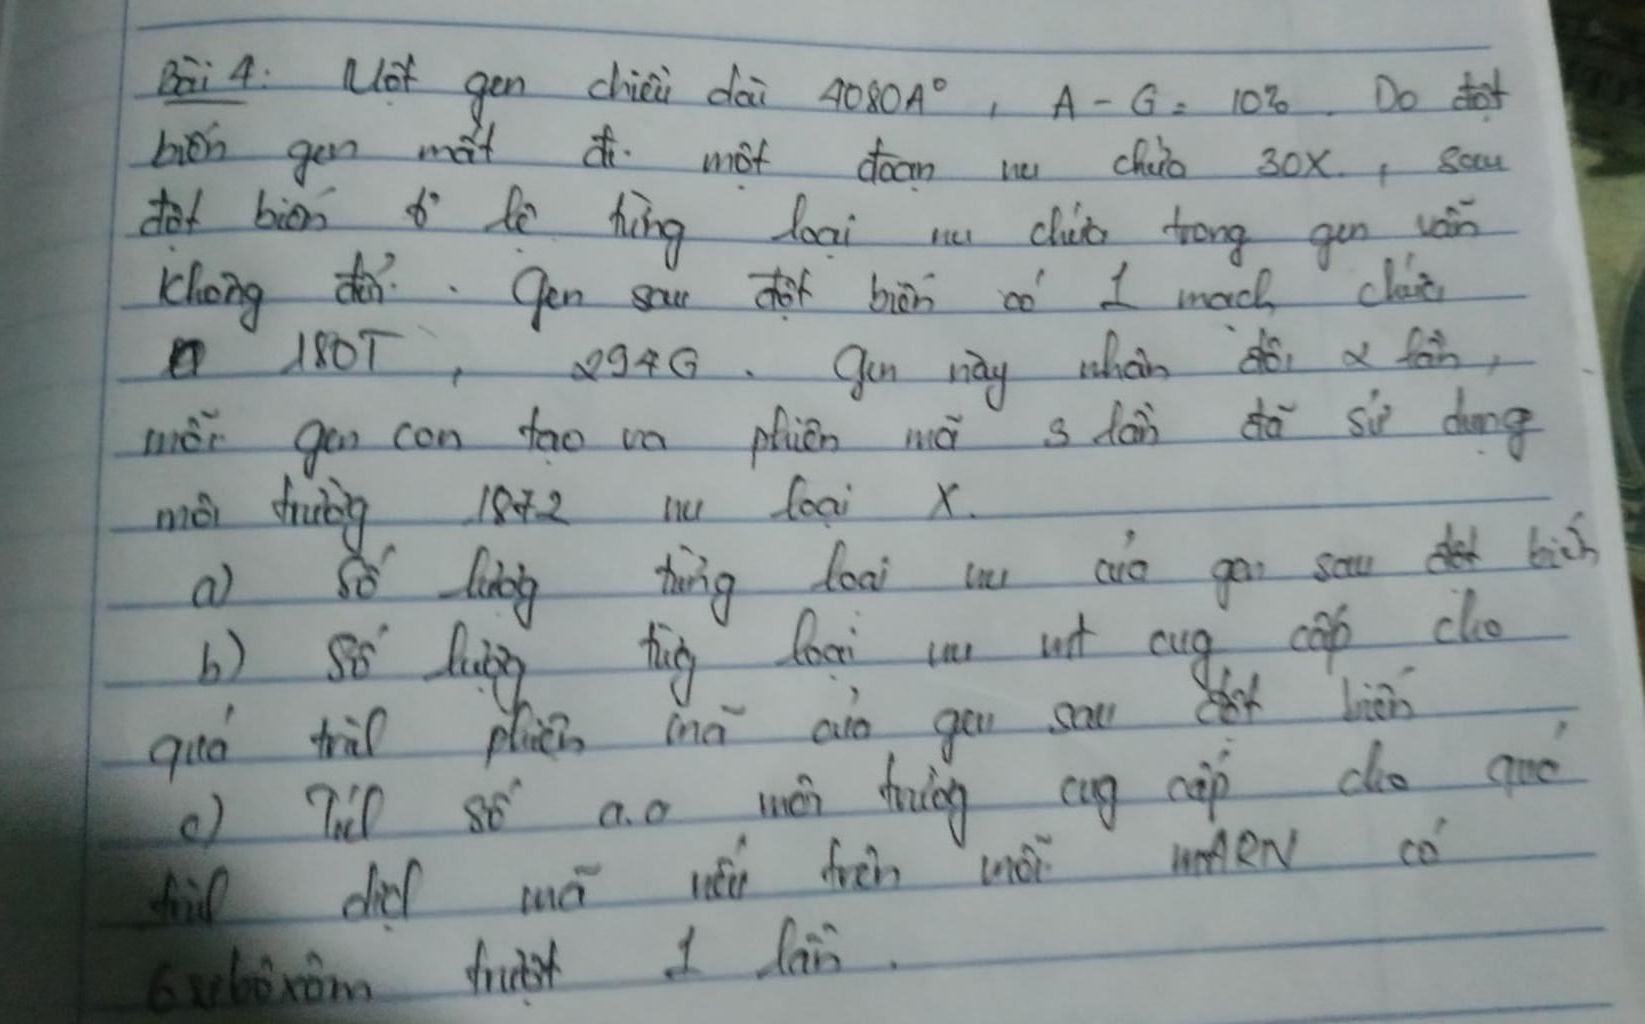 Bài 4: Một gen chiều dài 4080A°, A - G = 10%. Do đột
biến gen mất đi một đoạn nu chứa 30X, sau
đột biến tỉ lệ từng loại nu chứa trong gen vẫn
không đổi. Gen sau đột biến có 1 mạch chứa
180T, 294G. Gen này nhân đôi 2 lần,
mỗi gen con tạo ra phiên mã 3 lần đã sử dụng
môi trường 1872 nu loại X.
a) Số lượng từng loại nu của gen sau đột biến
b) Số lượng từng loại nu mt cug cấp cho
quá trìl phiên mã của gen sau đột biến
c) Tíl số a.a môi trường cug cấp cho quá
trìl dịcl mã nếu trên mỗi mARN có
6 ribôxôm trượt 1 lần.